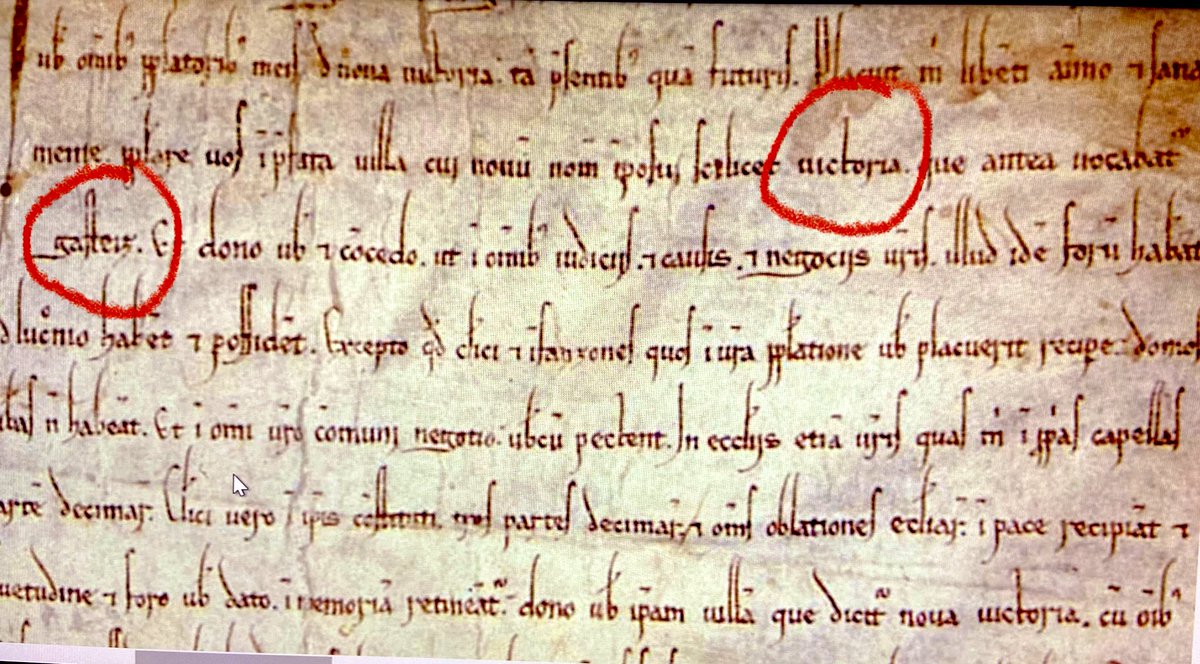 ub̵ om̅ib⁹ pp̲latorib⁹ meis d̵ noua uictoria. ta̅ p̅sentib⁹ qua̅ futuris. Placuit m̍ libe̅ti a̅i̅mo ⁊ sana
mente pp̲lare uos i̅ p̅fata uilla cui nouu̅ nom̅ i̅posui s̅cilicet uictoria. que antea uocabat᷑
gasteiz. Et dono ub̵ ⁊ co̅cedo. ut i̅ om̅ib⁹ iudiciis. ⁊ causis. ⁊ negociis ur̅is. illud ide̅ foru̅ habea
lucronio habe̅t ⁊ posside̅t. Excepto qd̵ cl̵ici ⁊ i̅fanzones quos i̅ ur̅a pp̲latione ub̵ placuerit recipe. domos
n̅ habea̅t. Et i̅ om̅i ur̅o co̅muni negotio. ubcu̅ pectent. In eccl̵iis etia̅ ur̅is quas m̍ i̅ pp̍as capellas
arte̅ decimar᷑. Cl̵ici uero i̅ ip̅is co̅stituti. tres partes decimar᷑. ⁊ om̅s oblationes eccl̵iar᷑. i̅ pace recipia̅t ⁊
uetudine ⁊ foro ub̵ dato. i̅ memoria̅ retinea̅t᷑. dono ub̵ ip̅am uilla̅ que dicit᷑ noua uictoria. cu̅ oi̅b⁹